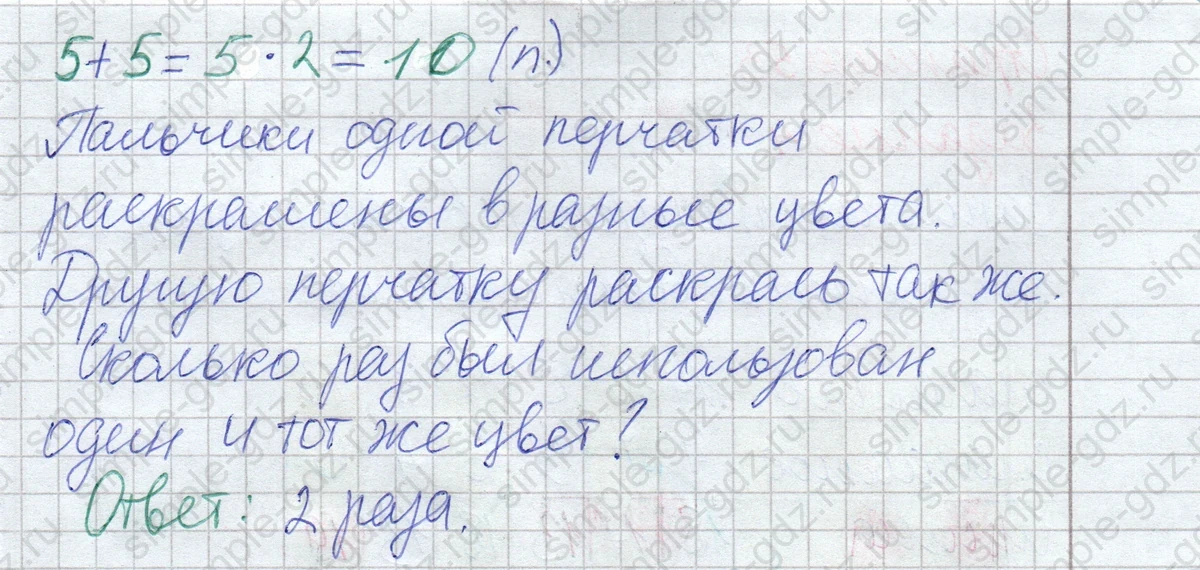 5+5=5·2=10 (п.)
Пальчики одной перчатки
раскрашены в разные цвета.
Другую перчатку раскрась так же.
Сколько раз был использован
один и тот же цвет?
Ответ: 2 раза.
simple-gdz.ru